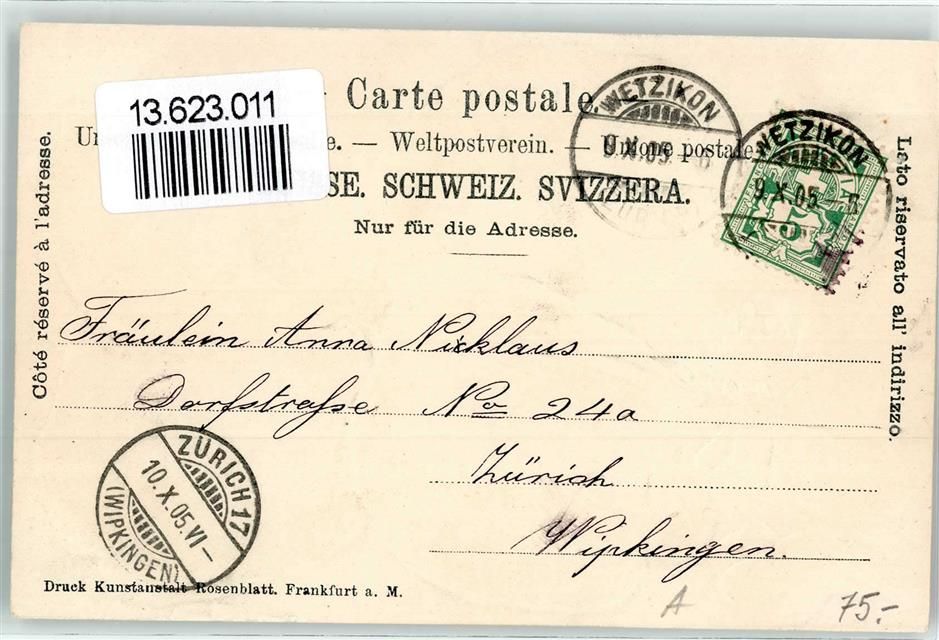 13.623.011
Carte postale.
Un e. — Weltpostverein. — Unione postale
SE. SCHWEIZ. SVIZZERA.
Nur für die Adresse.
Côté réservé à l'adresse.
Lato riservato all' indirizzo.
WETZIKON
9.X.05
WETZIKON
9.X.05
5
Fräulein Anna Nicklaus
Dorfstraße No 24a
Zürich
Wipkingen.
ZÜRICH 17
10.X.05.VI–
(WIPKINGEN)
Druck Kunstanstalt Rosenblatt. Frankfurt a. M.
A
75.-